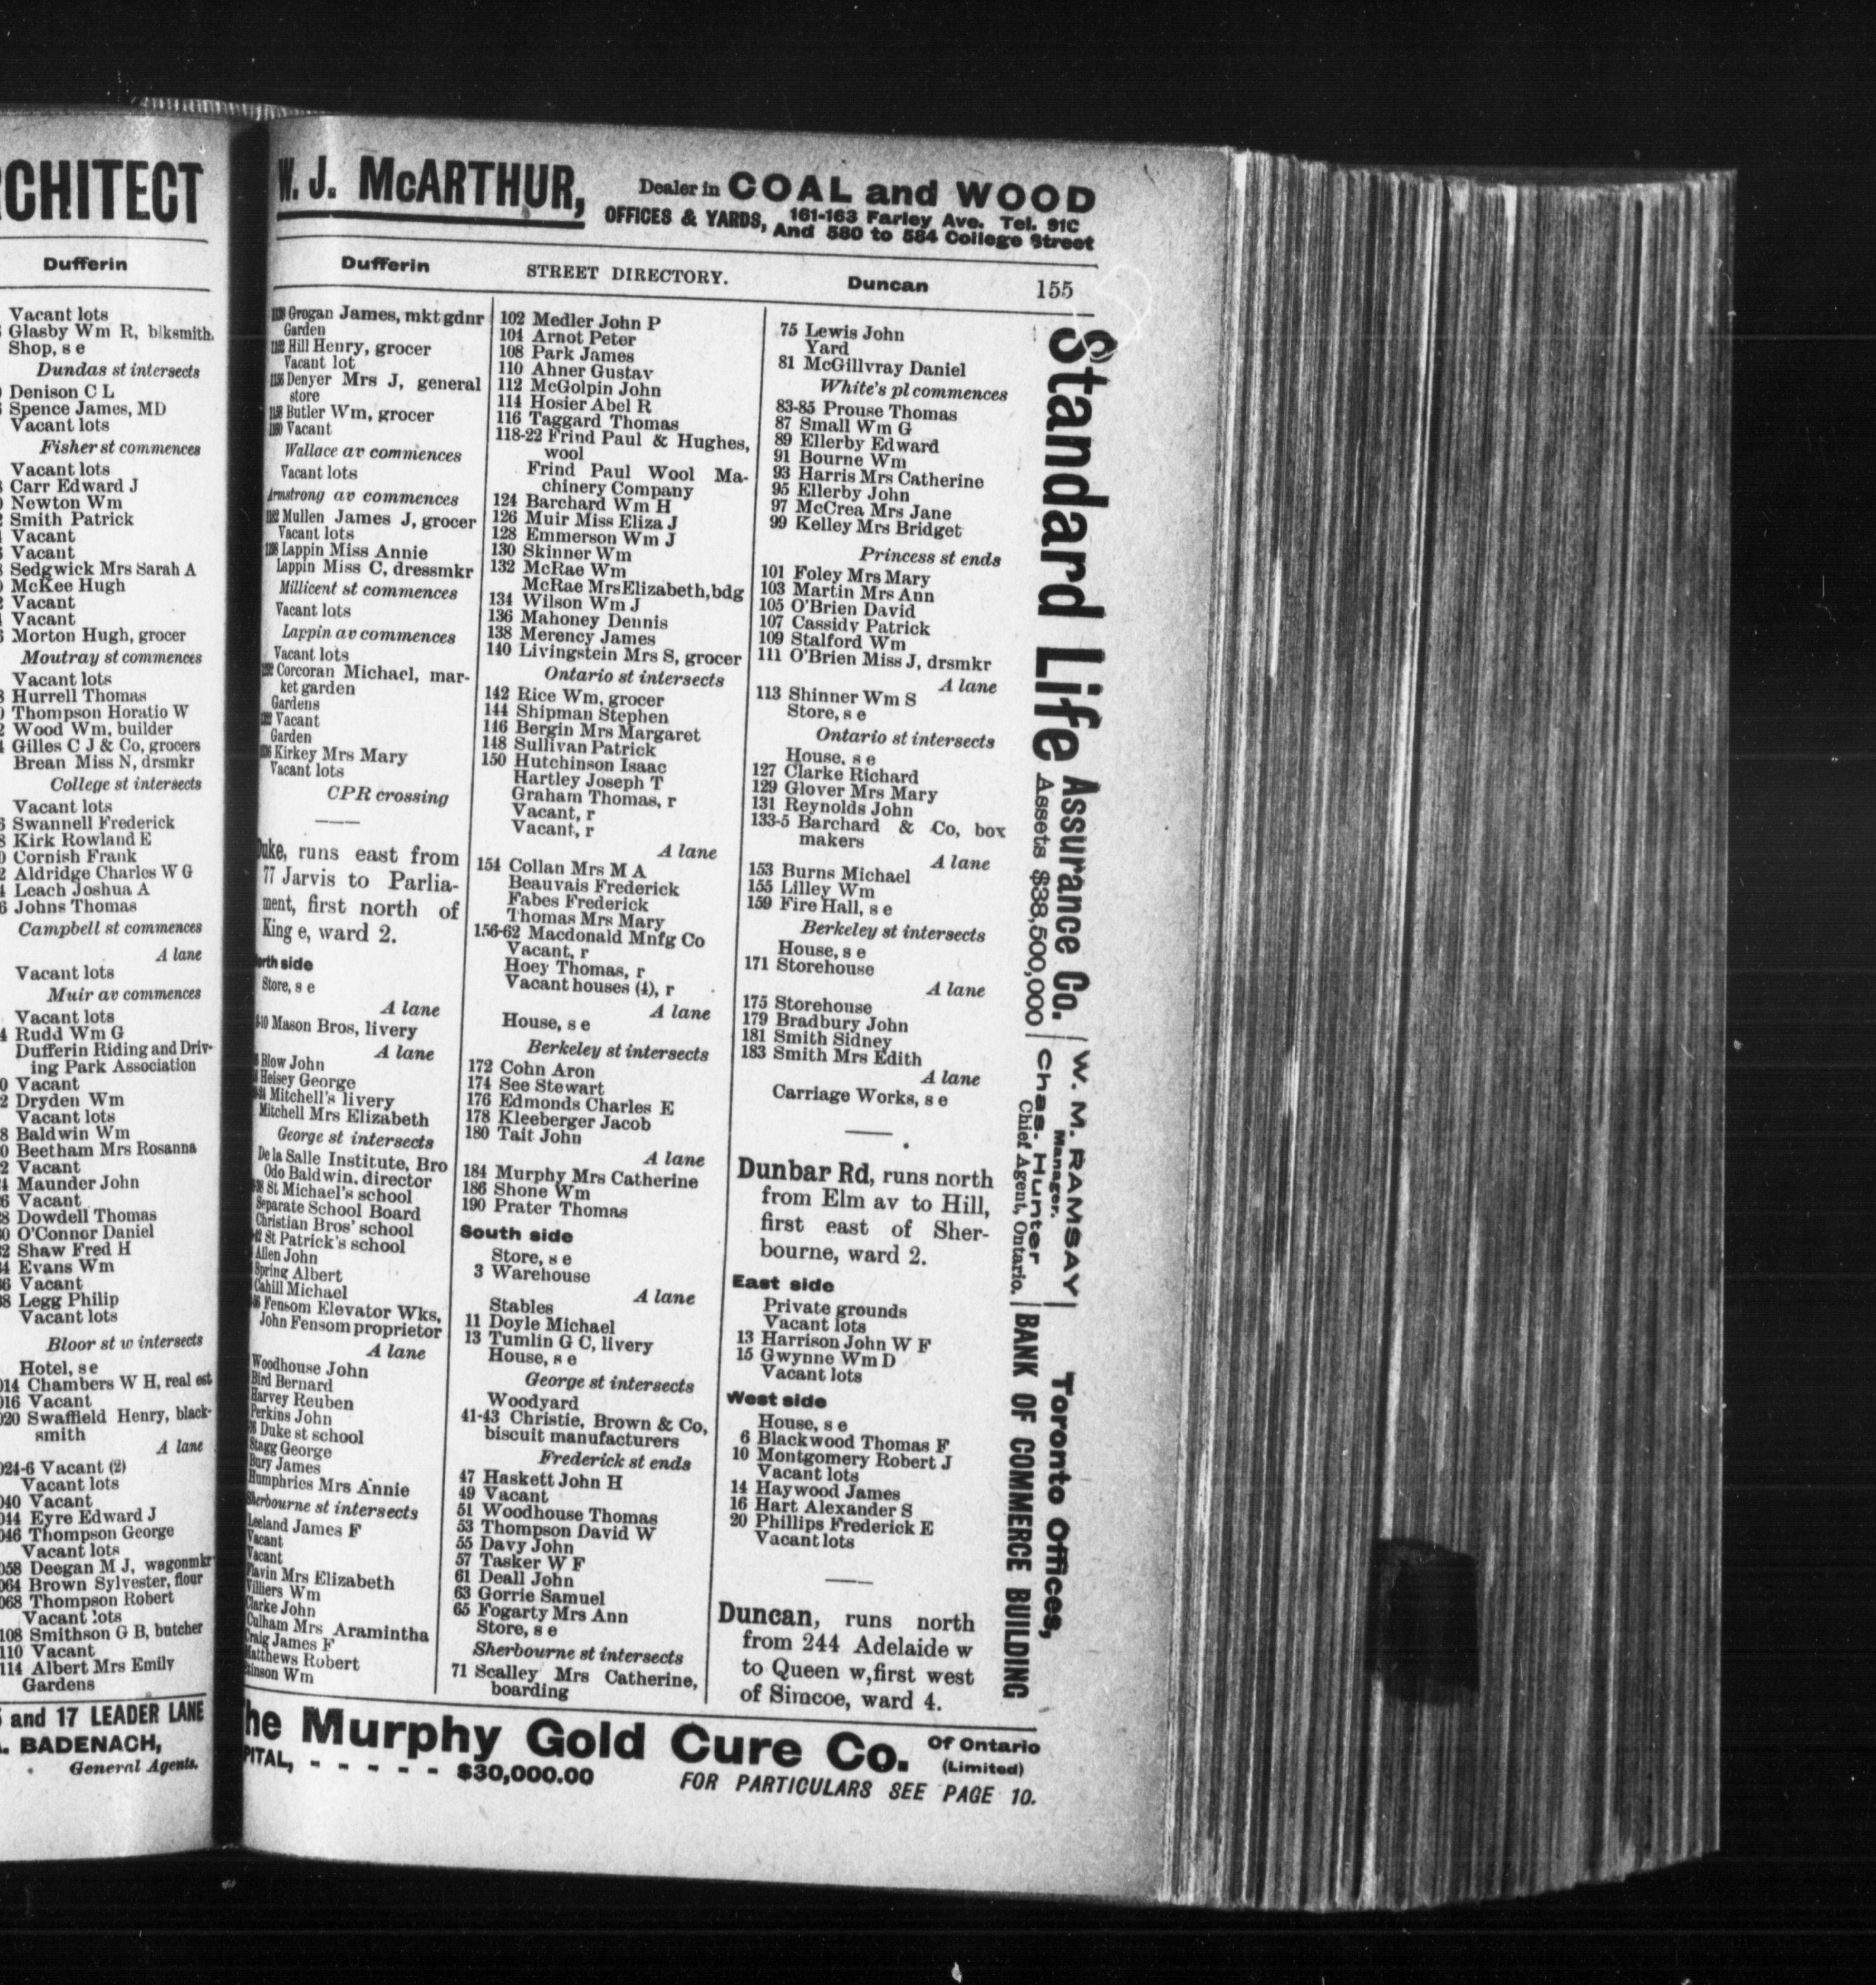 RCHITECT
Dufferin
Vacant lots
Glasby Wm R, blksmith.
Shop, s e
Dundas st intersects
Denison C L
Spence James, MD
Vacant lots
Fisher st commences
Vacant lots
Carr Edward J
Newton Wm
Smith Patrick
Vacant
Vacant
Sedgwick Mrs Sarah A
McKee Hugh
Vacant
Vacant
Morton Hugh, grocer
Moutray st commences
Vacant lots
Hurrell Thomas
Thompson Horatio W
Wood Wm, builder
Gilles C J & Co, grocers
Brean Miss N, drsmkr
College st intersects
Vacant lots
Swannell Frederick
Kirk Rowland E
Cornish Frank
Aldridge Charles W G
Leach Joshua A
Johns Thomas
Campbell st commences
A lane
Vacant lots
Muir av commences
Vacant lots
Rudd Wm G
Dufferin Riding and Driv-
ing Park Association
Vacant
Dryden Wm
Vacant lots
Baldwin Wm
Beetham Mrs Rosanna
Vacant
Maunder John
Vacant
Dowdell Thomas
O'Connor Daniel
Shaw Fred H
Evans Wm
Vacant
Legg Philip
Vacant lots
Bloor st w intersects
Hotel, s e
014 Chambers W H, real est
016 Vacant
020 Swaffield Henry, black-
smith
A lane
024-6 Vacant (2)
Vacant lots
040 Vacant
044 Eyre Edward J
046 Thompson George
Vacant lots
058 Deegan M J, wagonmkr
064 Brown Sylvester, flour
068 Thompson Robert
Vacant lots
108 Smithson G B, butcher
110 Vacant
114 Albert Mrs Emily
Gardens
and 17 LEADER LANE
. BADENACH,
General Agents.
W. J. McARTHUR,
Dealer in COAL and WOOD
OFFICES & YARDS, 161-163 Farley Ave. Tel. 91C
And 580 to 584 College Street
Dufferin STREET DIRECTORY. Duncan 155
Grogan James, mkt gdnr
Garden
Hill Henry, grocer
Vacant lot
Denyer Mrs J, general
store
Butler Wm, grocer
Vacant
Wallace av commences
Vacant lots
Armstrong av commences
Mullen James J, grocer
Vacant lots
Lappin Miss Annie
Lappin Miss C, dressmkr
Millicent st commences
Vacant lots
Lappin av commences
Vacant lots
Corcoran Michael, mar-
ket garden
Gardens
Vacant
Garden
Kirkey Mrs Mary
Vacant lots
CPR crossing
Duke, runs east from
77 Jarvis to Parlia-
ment, first north of
King e, ward 2.
North side
Store, s e
A lane
Mason Bros, livery
A lane
Blow John
Heisey George
Mitchell's livery
Mitchell Mrs Elizabeth
George st intersects
De la Salle Institute, Bro
Odo Baldwin, director
St Michael's school
Separate School Board
Christian Bros' school
St Patrick's school
Allen John
Spring Albert
Cahill Michael
Fensom Elevator Wks,
John Fensom proprietor
A lane
Woodhouse John
Bird Bernard
Harvey Reuben
Perkins John
Duke st school
Stagg George
Bury James
Humphries Mrs Annie
Sherbourne st intersects
Leeland James F
Vacant
Vacant
Flavin Mrs Elizabeth
Villiers Wm
Clarke John
Culham Mrs Aramintha
Craig James F
Matthews Robert
Wm
102 Medler John P
104 Arnot Peter
108 Park James
110 Ahner Gustav
112 McGolpin John
114 Hosier Abel R
116 Taggard Thomas
118-22 Frind Paul & Hughes,
wool
Frind Paul Wool Ma-
chinery Company
124 Barchard Wm H
126 Muir Miss Eliza J
128 Emmerson Wm J
130 Skinner Wm
132 McRae Wm
McRae Mrs Elizabeth, bdg
134 Wilson Wm J
136 Mahoney Dennis
138 Merency James
140 Livingstein Mrs S, grocer
Ontario st intersects
142 Rice Wm, grocer
144 Shipman Stephen
146 Bergin Mrs Margaret
148 Sullivan Patrick
150 Hutchinson Isaac
Hartley Joseph T
Graham Thomas, r
Vacant, r
Vacant, r
A lane
154 Collan Mrs M A
Beauvais Frederick
Fabes Frederick
Thomas Mrs Mary
156-62 Macdonald Mnfg Co
Vacant, r
Hoey Thomas, r
Vacant houses (4), r
A lane
House, s e
Berkeley st intersects
172 Cohn Aron
174 See Stewart
176 Edmonds Charles E
178 Kleeberger Jacob
180 Tait John
A lane
184 Murphy Mrs Catherine
186 Shone Wm
190 Prater Thomas
South side
Store, s e
3 Warehouse
A lane
Stables
11 Doyle Michael
13 Tumlin G C, livery
House, s e
George st intersects
Woodyard
41-43 Christie, Brown & Co,
biscuit manufacturers
Frederick st ends
47 Haskett John H
49 Vacant
51 Woodhouse Thomas
53 Thompson David W
55 Davy John
57 Tasker W F
61 Deall John
63 Gorrie Samuel
65 Fogarty Mrs Ann
Store, s e
Sherbourne st intersects
71 Scalley Mrs Catherine,
boarding
75 Lewis John
Yard
81 McGillvray Daniel
White's pl commences
83-85 Prouse Thomas
87 Small Wm G
89 Ellerby Edward
91 Bourne Wm
93 Harris Mrs Catherine
95 Ellerby John
97 McCrea Mrs Jane
99 Kelley Mrs Bridget
Princess st ends
101 Foley Mrs Mary
103 Martin Mrs Ann
105 O'Brien David
107 Cassidy Patrick
109 Stalford Wm
111 O'Brien Miss J, drsmkr
A lane
113 Shinner Wm S
Store, s e
Ontario st intersects
House, s e
127 Clarke Richard
129 Glover Mrs Mary
131 Reynolds John
133-5 Barchard & Co, box
makers
A lane
153 Burns Michael
155 Lilley Wm
159 Fire Hall, s e
Berkeley st intersects
House, s e
171 Storehouse
A lane
175 Storehouse
179 Bradbury John
181 Smith Sidney
183 Smith Mrs Edith
A lane
Carriage Works, s e
Dunbar Rd, runs north
from Elm av to Hill,
first east of Sher-
bourne, ward 2.
East side
Private grounds
Vacant lots
13 Harrison John W F
15 Gwynne Wm D
Vacant lots
West side
House, s e
6 Blackwood Thomas F
10 Montgomery Robert J
Vacant lots
14 Haywood James
16 Hart Alexander S
20 Phillips Frederick E
Vacant lots
Duncan, runs north
from 244 Adelaide w
to Queen w, first west
of Simcoe, ward 4.
Standard Life Assurance Co.
Assets $38,500,000
W. M. RAMSAY
Manager.
Chas. Hunter
Chief Agent, Ontario.
Toronto Offices,
BANK OF COMMERCE BUILDING
he Murphy Gold Cure Co. Of Ontario
(Limited)
PITAL, - - - - - $30,000.00
FOR PARTICULARS SEE PAGE 10.